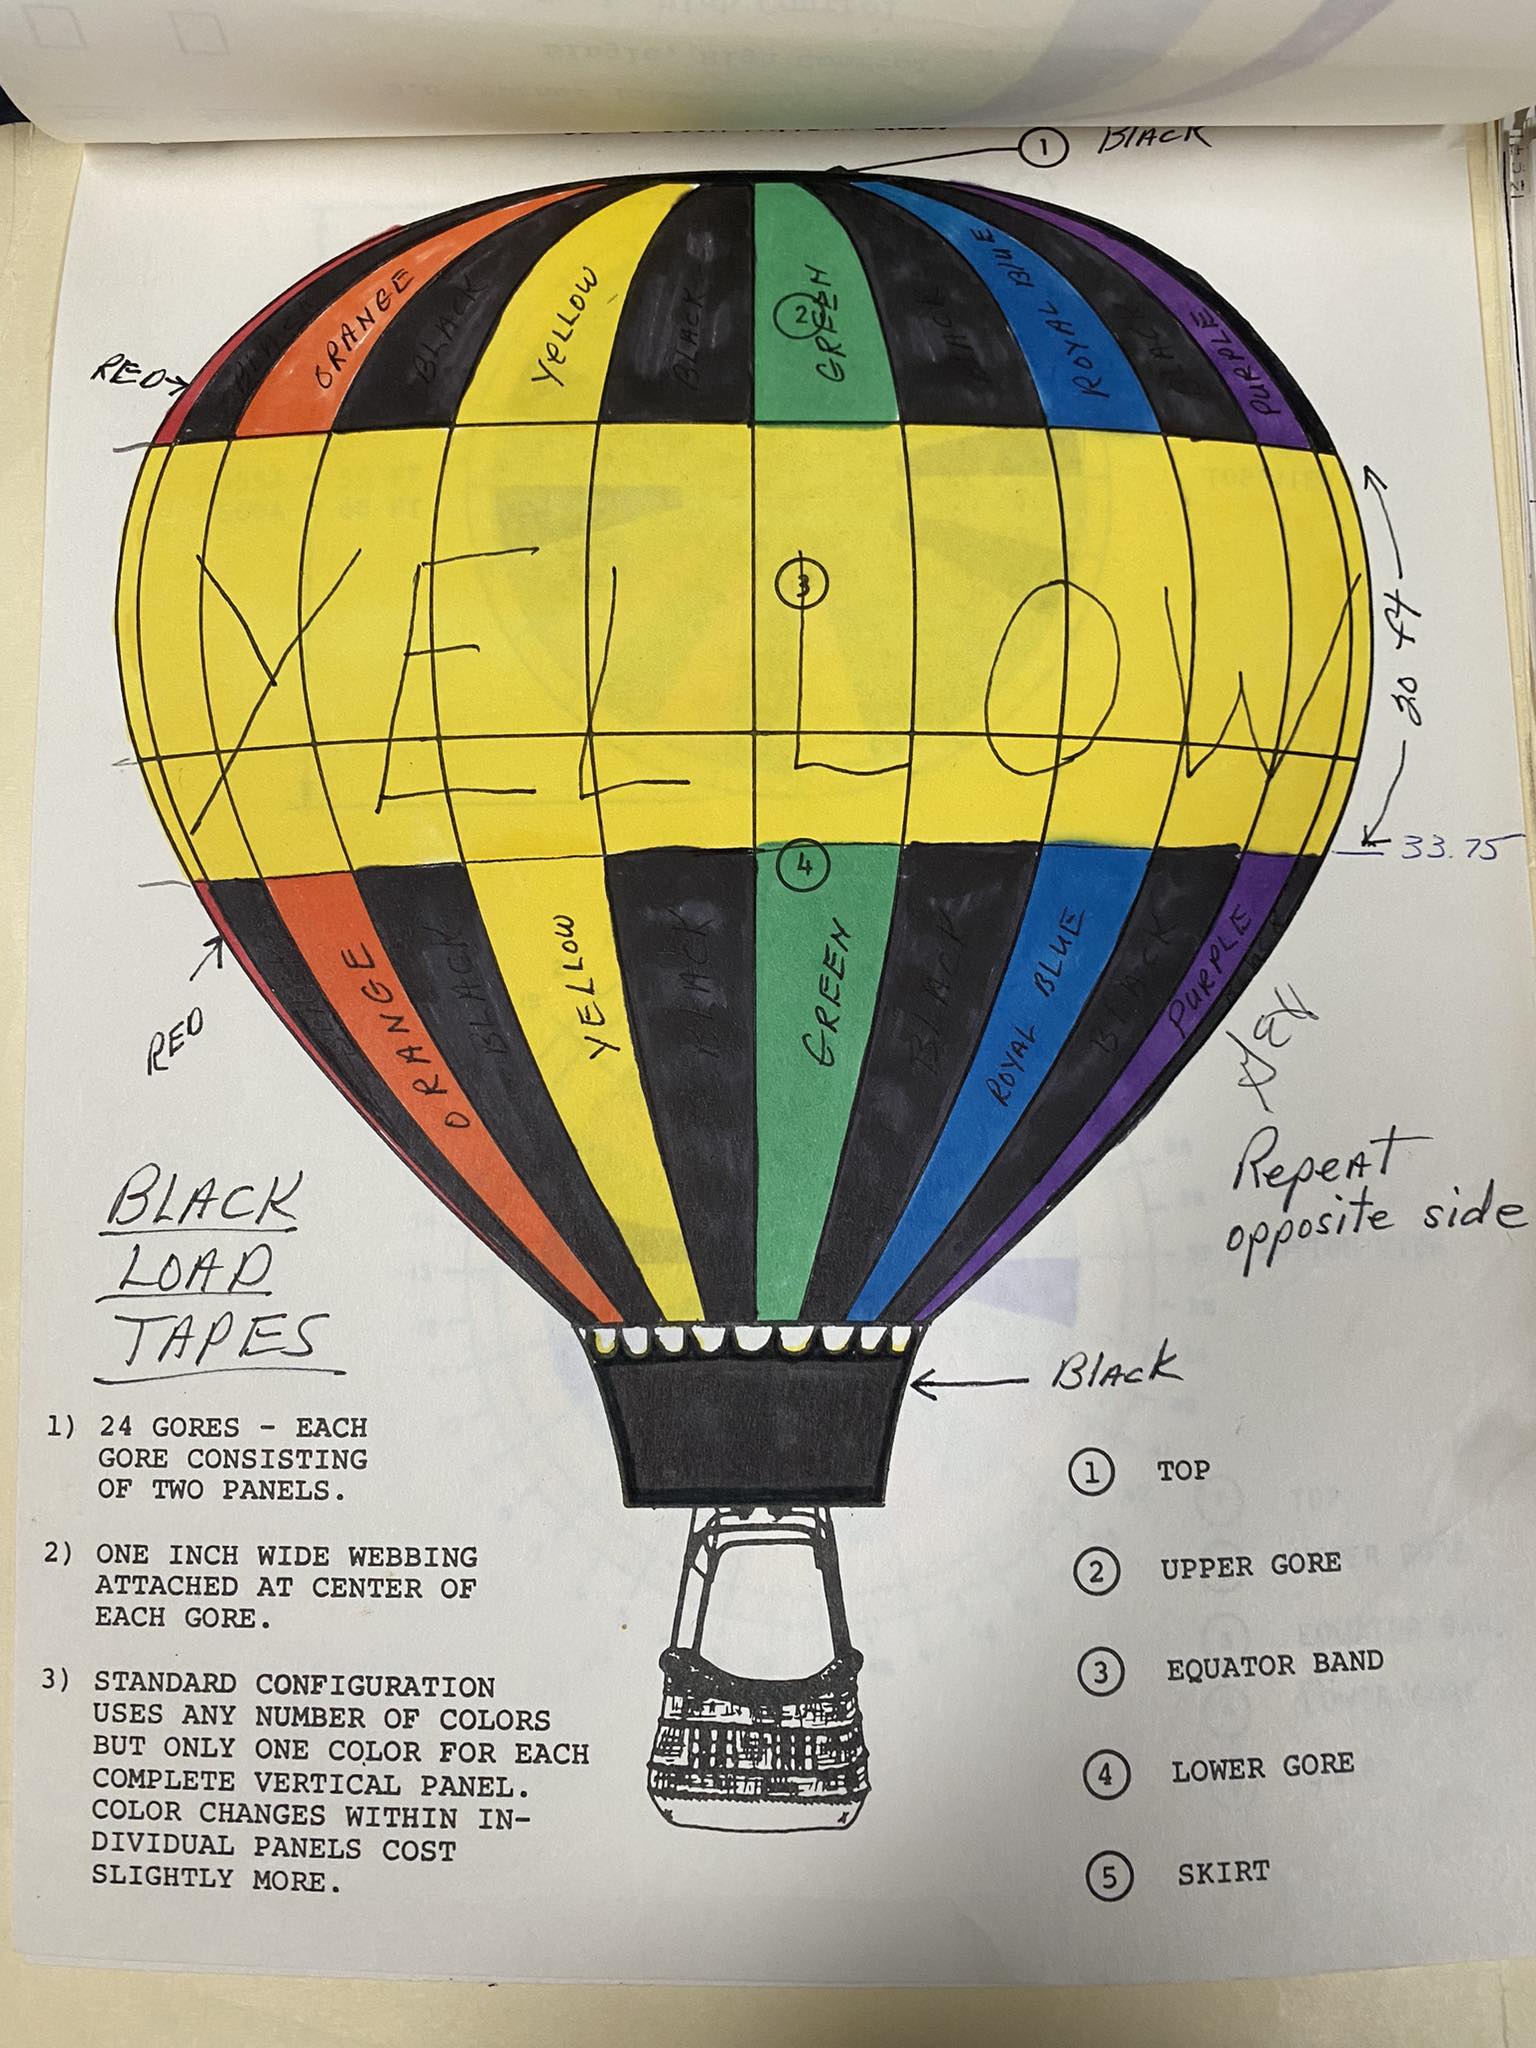 1 BLACK
RED
BLACK
ORANGE
BLACK
YELLOW
BLACK
2
GREEN
BLACK
ROYAL BLUE
BLACK
PURPLE
3
YELLOW
20 ft
33.75
4
RED
BLACK
ORANGE
BLACK
YELLOW
BLACK
GREEN
BLACK
ROYAL BLUE
BLACK
PURPLE
BLACK
Repeat
opposite side
BLACK
LOAD
TAPES
Black
1) 24 GORES - EACH
GORE CONSISTING
OF TWO PANELS.
2) ONE INCH WIDE WEBBING
ATTACHED AT CENTER OF
EACH GORE.
3) STANDARD CONFIGURATION
USES ANY NUMBER OF COLORS
BUT ONLY ONE COLOR FOR EACH
COMPLETE VERTICAL PANEL.
COLOR CHANGES WITHIN IN-
DIVIDUAL PANELS COST
SLIGHTLY MORE.
1 TOP
2 UPPER GORE
3 EQUATOR BAND
4 LOWER GORE
5 SKIRT